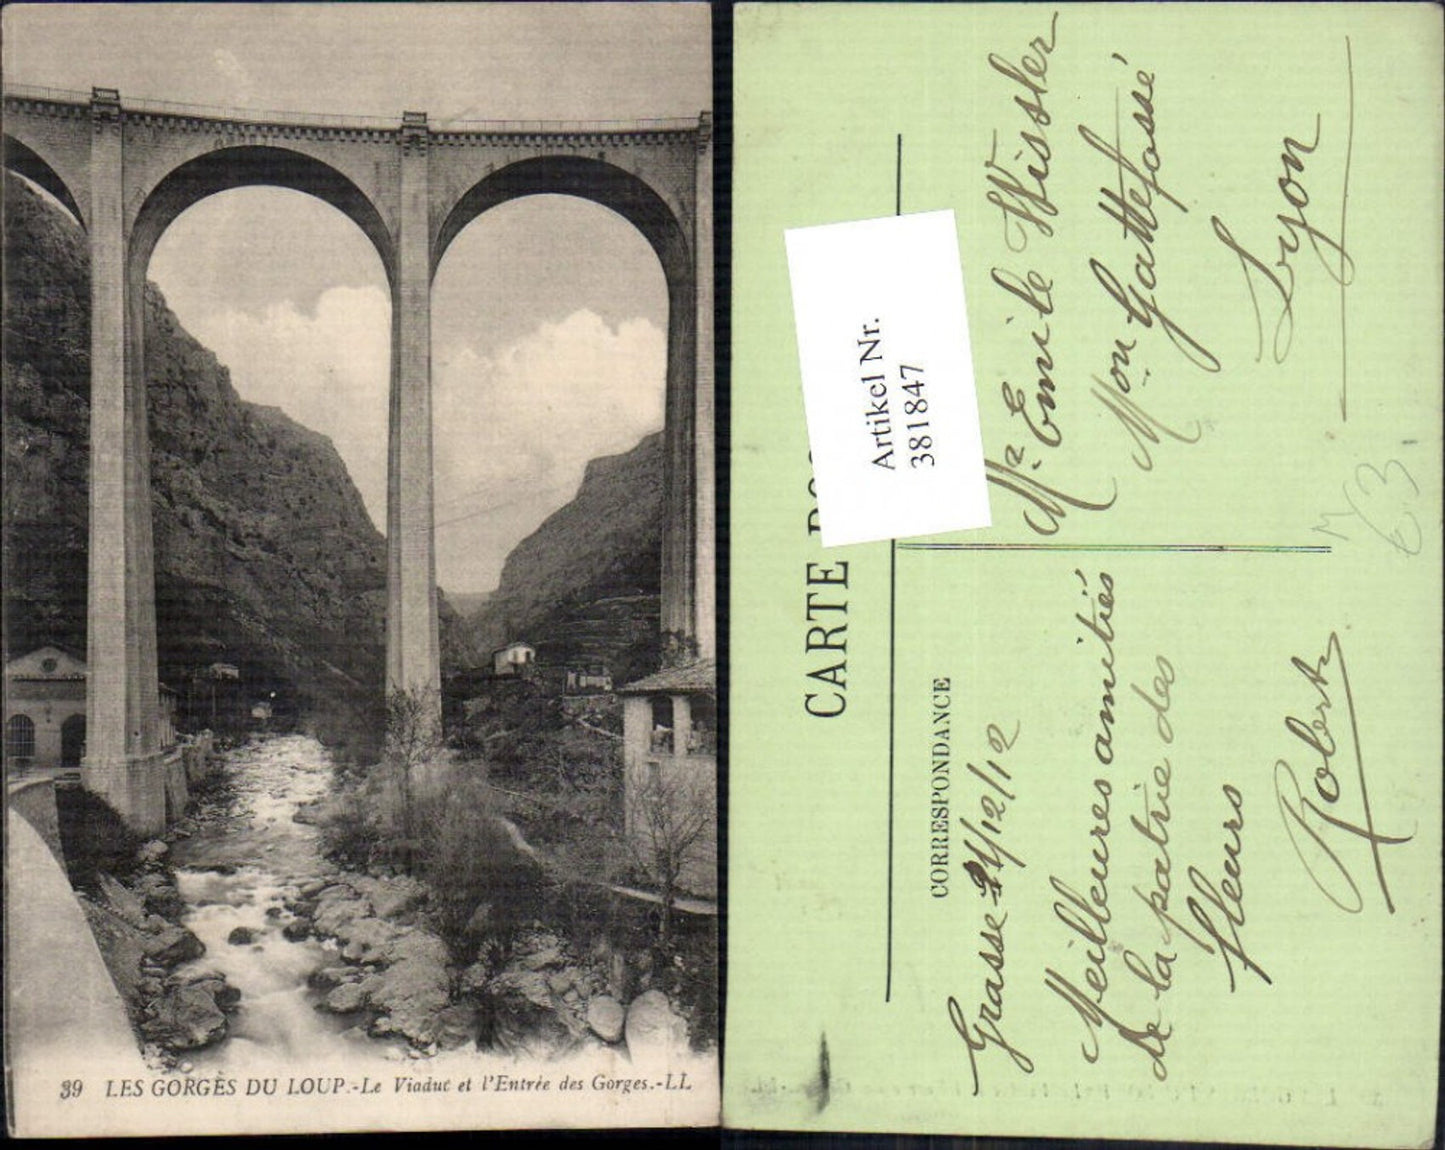 39 LES GORGES DU LOUP.-Le Viaduc et l'Entrée des Gorges.-LL
CARTE
Artikel Nr.
381847
CORRESPONDANCE
Grasse 21/12/12
Meilleures amitiés
de la patrie des
fleurs
Robert
Mr. Emile Wissler
Mon Gattefossé
Lyon